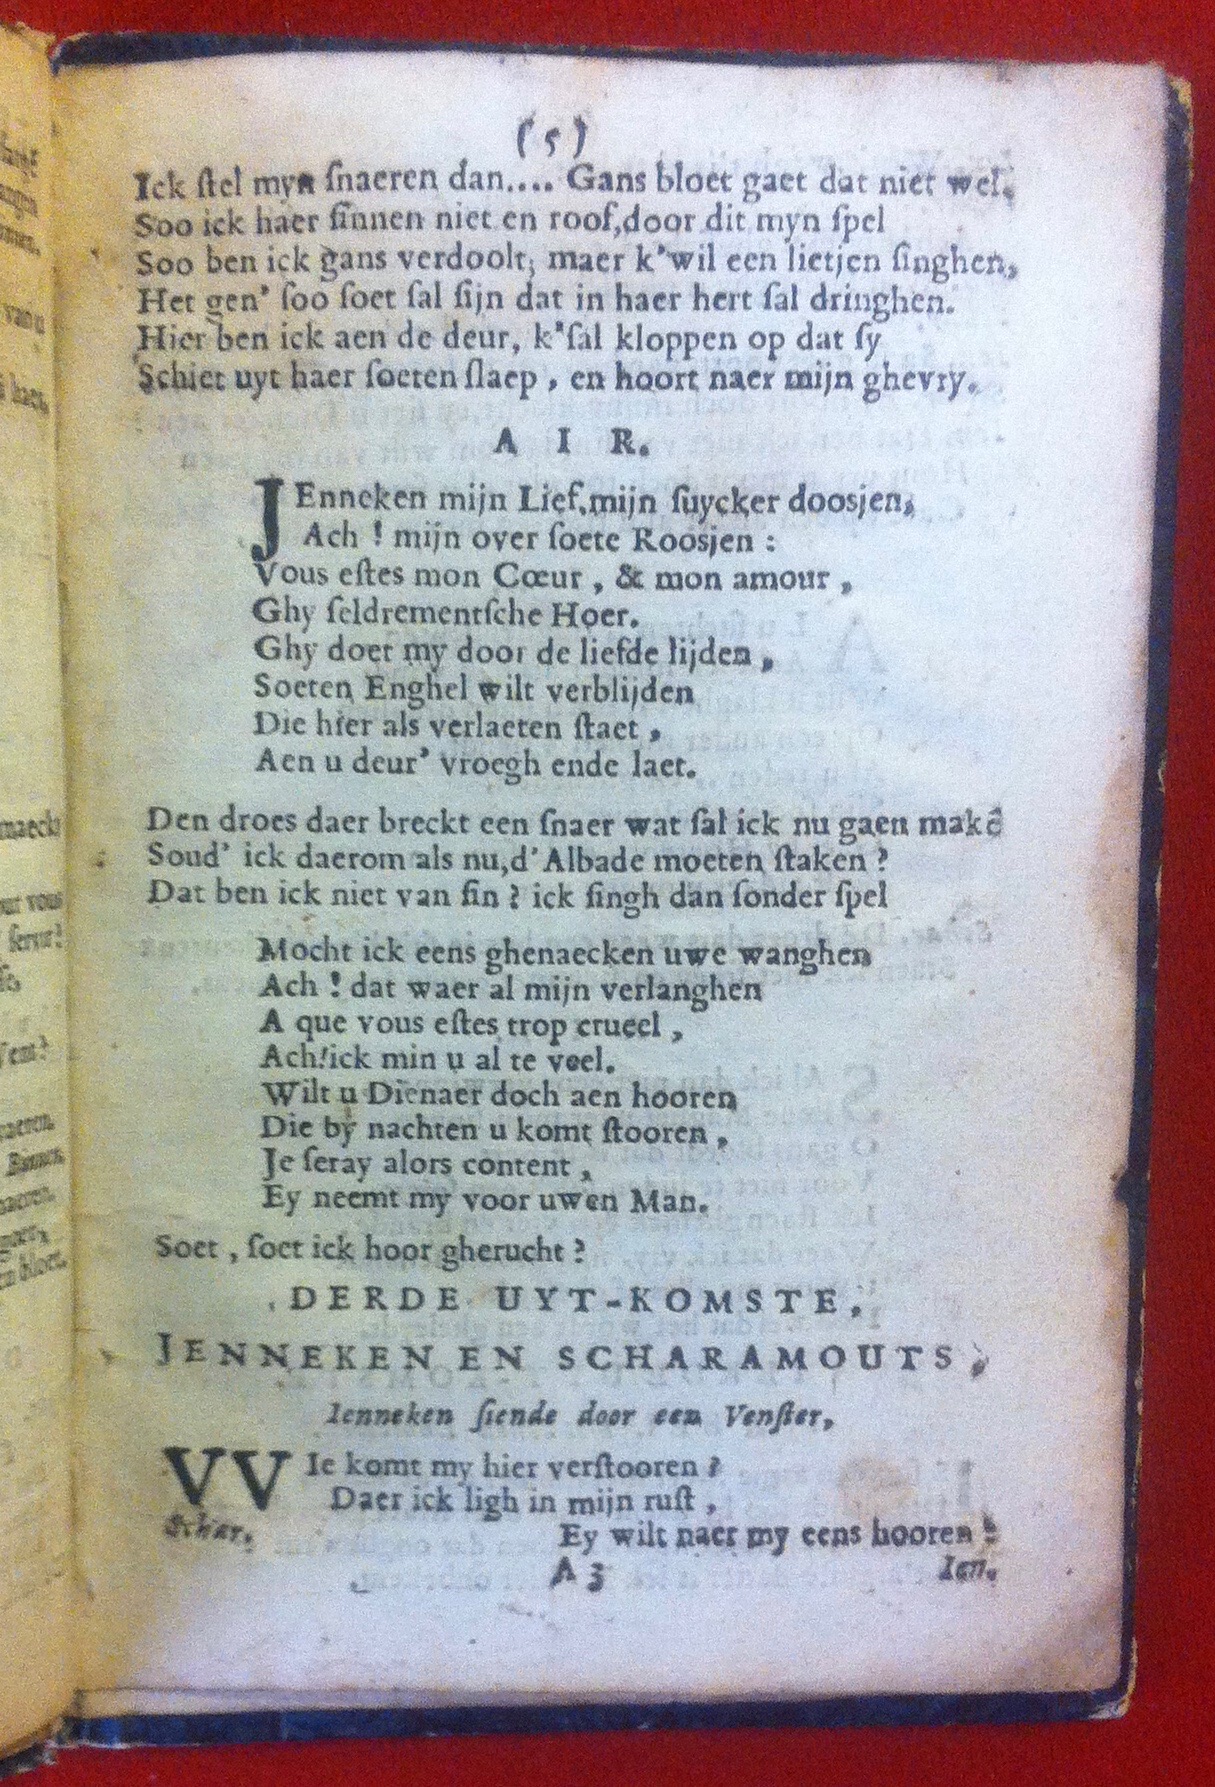 (5)
Ick ſtel myn ſnaeren dan.... Gans bloet gaet dat niet wel.
Soo ick haer ſinnen niet en roof,door dit myn ſpel
Soo ben ick gans verdoolt; maer k'wil een lietjen ſinghen,
Het gen' ſoo ſoet ſal ſijn dat in haer hert ſal dringhen.
Hier ben ick aen de deur, k'ſal kloppen op dat ſy
Schiet uyt haer ſoeten ſlaep, en hoort naer mijn ghevry.
AIR.
JEnneken mijn Lief,mijn ſuycker doosjen,
Ach! mijn over ſoete Roosjen:
Vous eſtes mon Cœur, & mon amour,
Ghy ſeldrementſche Hoer.
Ghy doet my door de liefde lijden,
Soeten Enghel wilt verblijden
Die hier als verlaeten ſtaet,
Aen u deur' vroegh ende laet.
Den droes daer breckt een ſnaer wat ſal ick nu gaen makē
Soud' ick daerom als nu,d'Albade moeten ſtaken?
Dat ben ick niet van ſin? ick ſingh dan ſonder ſpel
Mocht ick eens ghenaecken uwe wanghen
Ach! dat waer al mijn verlanghen
A que vous eſtes trop crueel,
Ach!ick min u al te veel.
Wilt u Dienaer doch aen hooren
Die by nachten u komt ſtooren,
Je ſeray alors content,
Ey neemt my voor uwen Man.
Soet, ſoet ick hoor gherucht?
DERDE UYT-KOMSTE.
JENNEKEN EN SCHARAMOUTS,
Ienneken ſiende door een Venſter,
VVIe komt my hier verſtooren?
Daer ick ligh in mijn ruſt,
Schar. Ey wilt naer my eens hooren!
A 3 Ien.
maecks